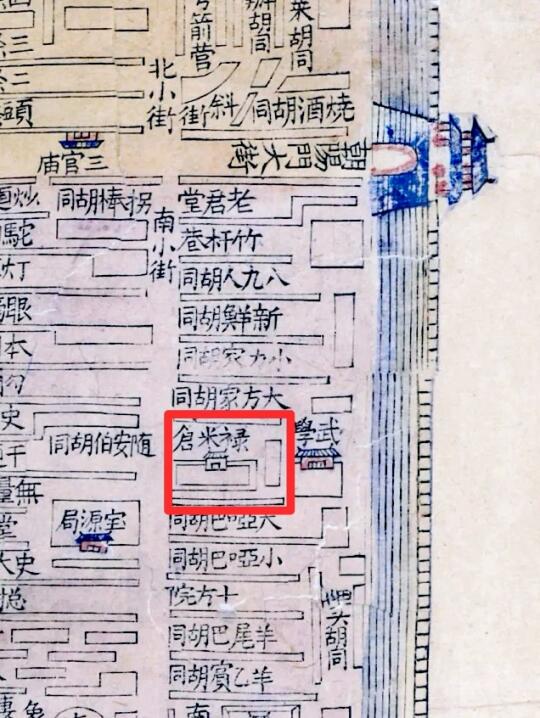 箭营
胡同
胡同
北小街
斜街
燒酒胡同
朝陽門大街
三官庙
拐棒胡同
南小街
老君堂
竹杆巷
八九人胡同
新鮮胡同
小方家胡同
大方家胡同
禄米倉
武學
随安伯胡同
大啞巴胡同
宝源局
小啞巴胡同
十方院
头胡同
羊尾巴胡同
羊乙賓胡同